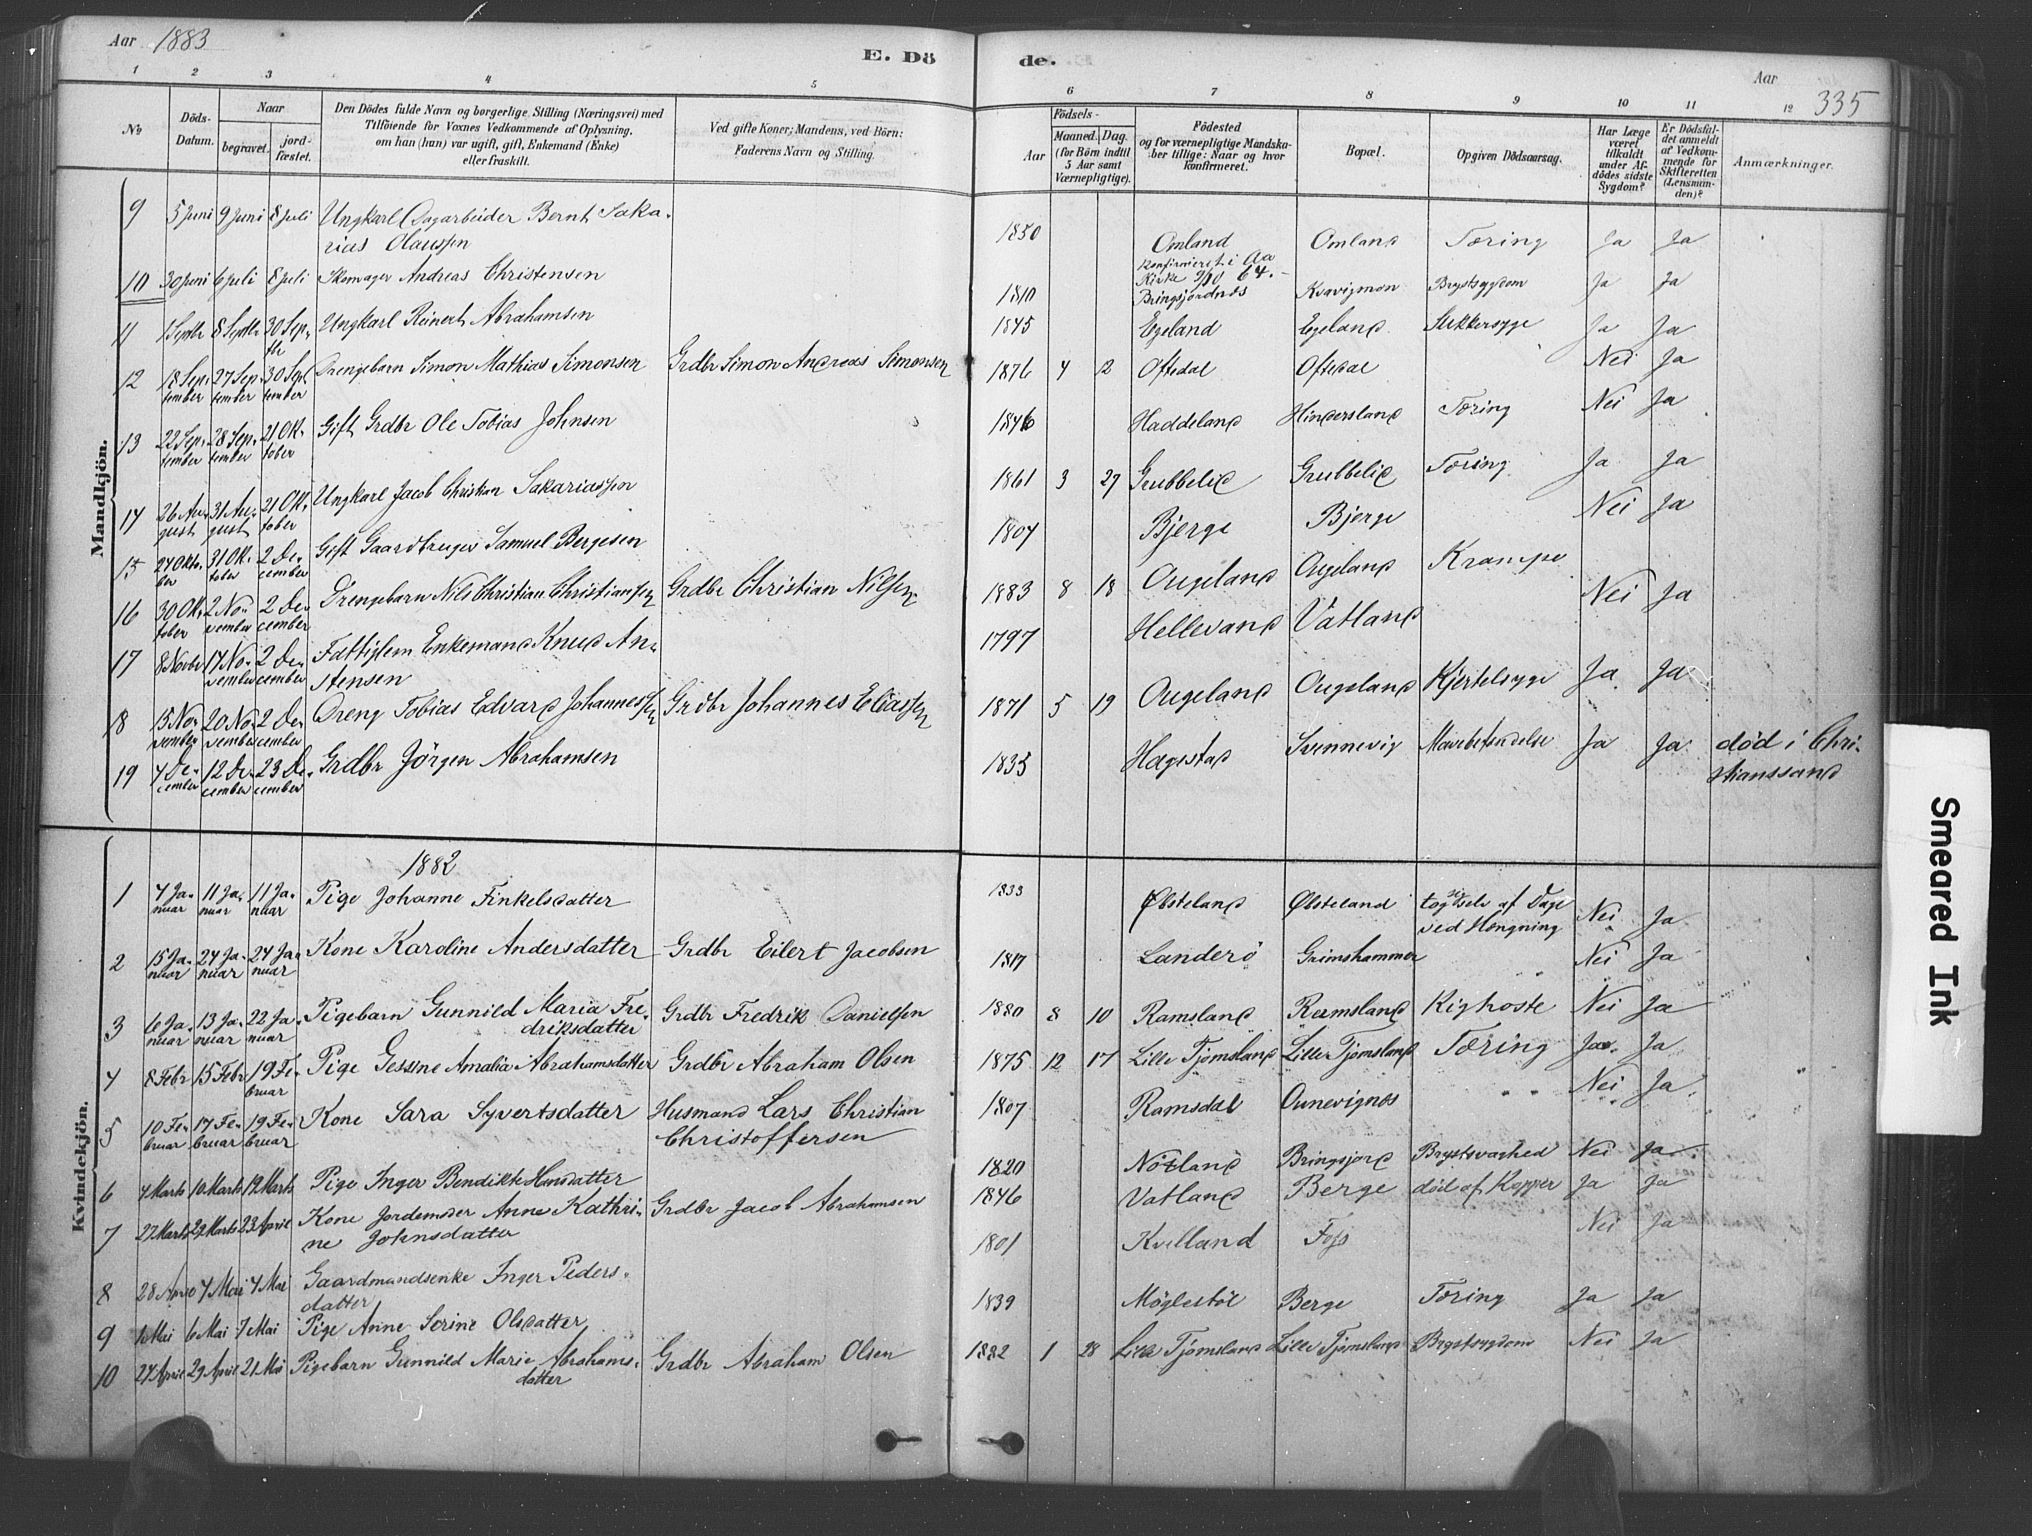 Aar 1883
E. Dö
de.
Aar
335
1 2 3 4 5 6 7 8 9 10 11 12
No
Döds-Datum.
Naar
begravet.
jord-fæstet.
Den Dödes fulde Navn og borgerlige Stilling (Næringsvei) med
Tilföiende for Voxnes Vedkommende af Oplysning,
om han (hun) var ugift, gift, Enkemand (Enke)
eller fraskilt.
Ved gifte Koner; Mandens, ved Börn:
Faderens Navn og Stilling.
Födsels-
Aar
Maaned. Dag.
(for Börn indtil
5 Aar samt
Værnepligtige).
Födested
og for værnepligtige Mandska-
ber tillige: Naar og hvor
konfirmeret.
Bopæl.
Opgiven Dödsaarsag.
Har Læge
været
tilkaldt
under Af-
dödes sidste
Sygdom?
Er Dödsfal-
det anmeldt
af Vedkom-
mende for
Skifteretten
(Lensman-
den)?
Anmærkninger.
Mandkjön.
9 5 Juni 9 Juni 8 Juli Ungkarl Dagarbeider Bernt Saka-
rias Olaussen 1850 Omland Omland Tæring Ja Ja
konfirmeret i Aa
Kirke 9/10 64.
10 30 Juni 6 Juli 8 Juli Skomager Andreas Christensen 1810 Bringsjordnes Kvavigmon Brystsygdom Ja Ja
11 1 Septbr 8 Septbr 30 Sep-
tbr Ungkarl Reinert Abrahamsen 1845 Egeland Egeland Sukkersyge Ja Ja
12 18 Sep-
tember 27 Sep-
tember 30 Sep-
tember Drengebarn Simon Mathias Simonsen Grdbr Simon Andreas Simonsen 1876 4 2 Oftedal Oftedal Nei Ja
13 22 Sep-
tember 28 Sep-
tember 21 Ok-
tober Gift Grdbr Ole Tobias Johnsen 1846 Haddeland Hindersland Tæring Nei Ja
14 26 Au-
gust 31 Au-
gust 21 Ok-
tober Ungkarl Jacob Christian Sakariassen 1861 3 27 Grubbelid Grubbelid Tæring Ja Ja
15 24 Okto-
ber 31 Ok-
tober 2 De-
cember Gift Gaardbruger Samuel Bergesen 1804 Bjerge Bjerge Nei Ja
16 30 Ok-
tober 2 No-
vember 2 De-
cember Drengebarn Nils Christian Christianssen Grdbr Christian Nilsen 1883 8 18 Augeland Augeland Krampe Nei Ja
17 8 Novbr 17 No-
vember 2 De-
cember Fattiglem Enkemand Knud An-
stensen 1797 Hellevand Vatland
18 15 No-
vember 20 No-
vember 2 De-
cember Dreng Tobias Edvard Johannessen Grdbr Johannes Eliassen 1871 5 19 Augeland Augeland Kjertelsyge Ja Ja
19 4 De-
cember 12 De-
cember 23 De-
cember Grdbr Jörgen Abrahamsen 1835 Hagestad Svennevig Mavebetendelse Ja Ja död i Chri-
stianssand
Kvindekjön.
1882
1 4 Ja-
nuar 11 Ja-
nuar 11 Ja-
nuar Pige Johanne Finkelsdatter 1833 Øbsteland Øbsteland tog sig selv af Dage
ved Hængning Nei Ja
2 15 Ja-
nuar 24 Ja-
nuar 24 Ja-
nuar Kone Karoline Andersdatter Grdbr Eilert Jacobsen 1817 Landerö Grimshammer Nei Ja
3 6 Ja-
nuar 13 Ja-
nuar 22 Ja-
nuar Pigebarn Gunnild Maria Fre-
driksdatter Grdbr Fredrik Danielsen 1880 8 10 Ramsland Ramsland Kighoste Nei Ja
4 8 Febr 15 Febr 19 Fe-
bruar Pige Gessine Amalia Abrahamsdatter Grdbr Abraham Olsen 1875 12 17 Lille Tjomsland Lille Tjomsland Tæring Ja Ja
5 10 Fe-
bruar 17 Fe-
bruar 19 Fe-
bruar Kone Sara Syvertsdatter Husmand Lars Christian
Christoffersen 1807 Ramsdal Nei Ja
6 4 Marts 10 Marts 12 Marts Pige Inger Bendikte Hansdatter 1820 Nötland Bringsjord Brystsvaghed Nei Ja
7 27 Marts 29 Marts 23 April Kone Jordemoder Anne Kathri-
ne Johnsdatter Grdbr Jacob Abrahamsen 1846 Vatland Berge död af Kopper Ja Ja
8 28 Apr 4 Mai 7 Mai Gaardmandsenke Inger Peders-
datter 1801 Kvelland Foss Nei Ja
9 1 Mai 6 Mai 7 Mai Pige Anne Serine Olsdatter 1839 Möglestöl Berge Tæring Ja Ja
10 24 April 29 April 21 Mai Pigebarn Gunnild Marie Abrahams-
datter Grdbr Abraham Olsen 1882 1 28 Lille Tjomsland Lille Tjomsland Brystsygdom Nei Ja
Smeared Ink